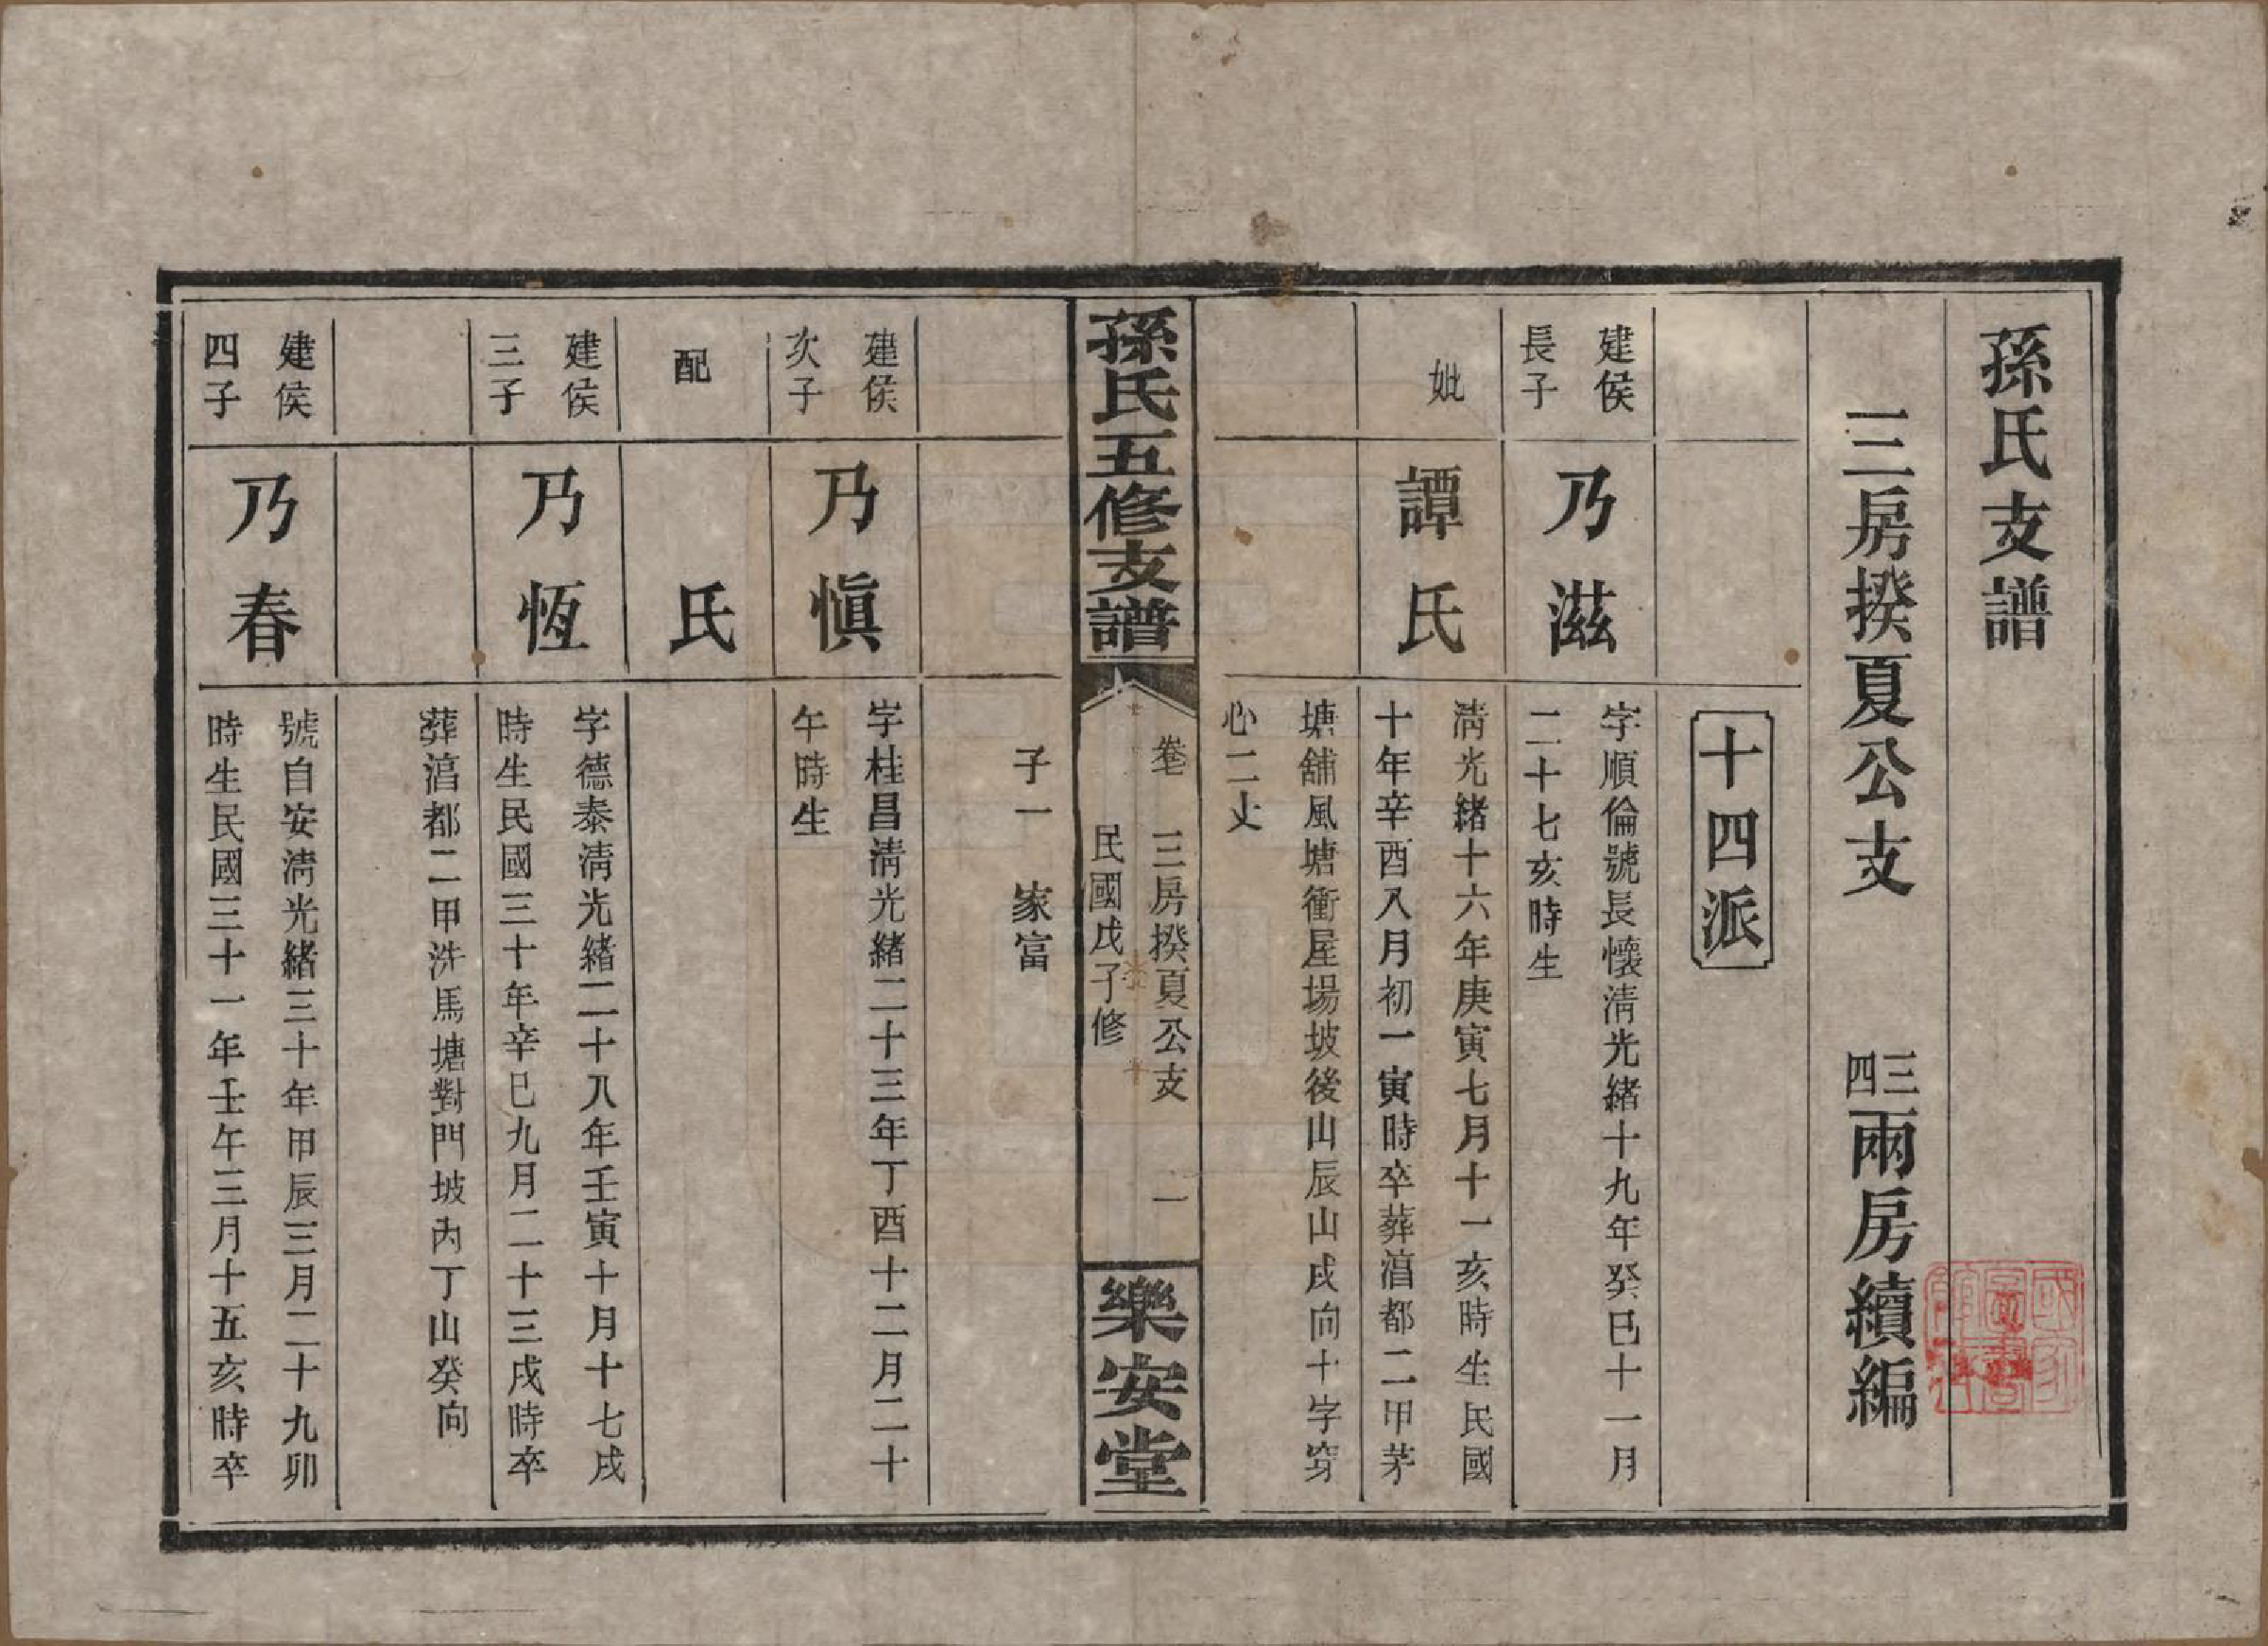 孫氏支譜
三房揆夏公支 三四兩房續編
十四派
建侯
長子
乃滋
字順倫號長懷清光緒十九年癸巳十一月
二十七亥時生
妣
譚氏
清光緒十六年庚寅七月十一亥時生民國
十年辛酉八月初一寅時卒葬湻都二甲茅
塘舖風塘衝屋場坡後山辰山戌向十字穿
心二丈
孫氏五修支譜
卷七 三房揆夏公支 一
民國戊子修
樂安堂
子一 家富
建侯
次子
乃愼
字桂昌清光緒二十三年丁酉十二月二十
午時生
配
氏
建侯
三子
乃恆
字德泰清光緒二十八年壬寅十月十七戌
時生民國三十年辛巳九月二十三戌時卒
葬湻都二甲洗馬塘對門坡內丁山癸向
建侯
四子
乃春
號自安清光緒三十年甲辰三月二十九卯
時生民國三十一年壬午三月十五亥時卒